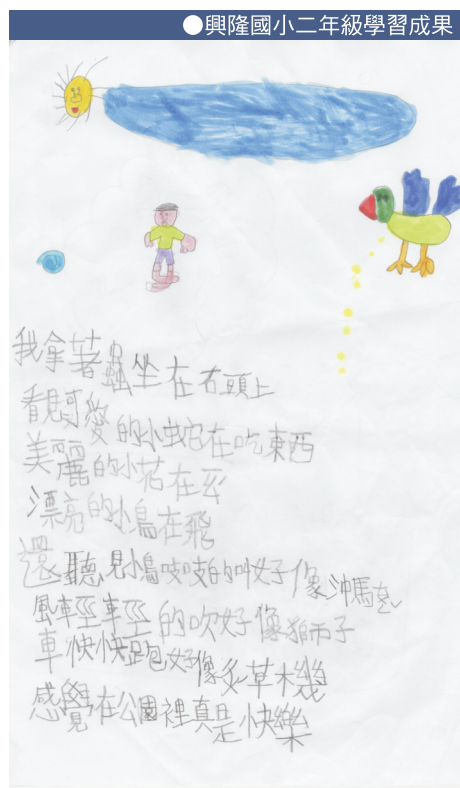 ●興隆國小二年級學習成果
我拿著蟲坐在石頭上
看見可愛的小蛇在吃東西
美麗的小花在玩
漂亮的小鳥在飛
還聽見小鳥吱吱的叫好像沖馬
風輕輕的吹好像獅子
車快快跑好像 草木幾
感覺在公園裡真是快樂